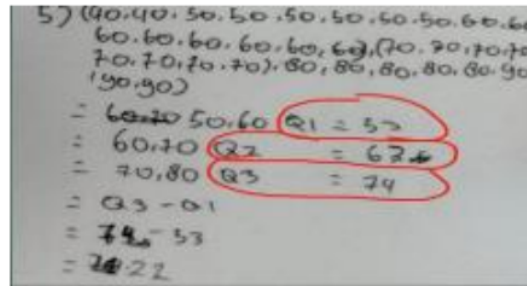 5) (40.40.50.50.50.50.50.50.60.60
60.60.60.60.60.60),(70.70.70.70
70.70.70.70).80,80,80.80.80.90
,90,90)
= 50,60 Q1 = 53
= 60,70 Q2 =
= 70,80 Q3 = 74
= Q3 - Q1
= 74 - 53
= 22